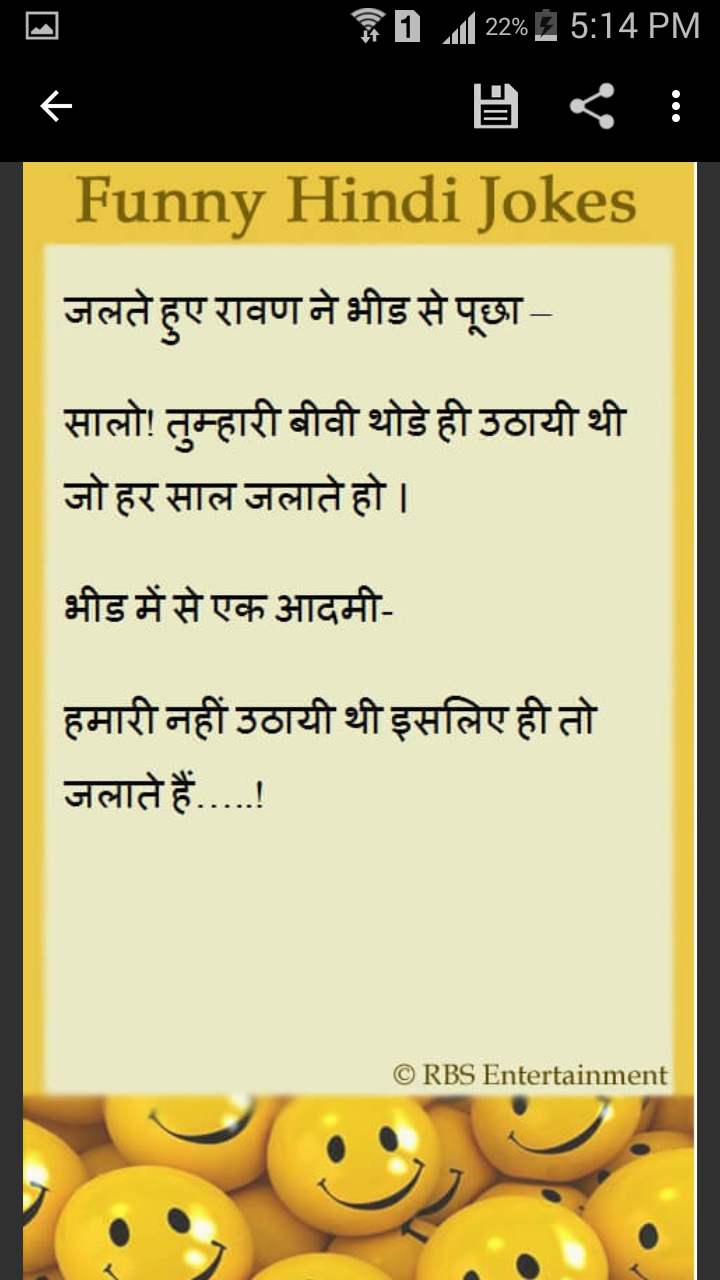 22% 5:14 PM
Funny Hindi Jokes
जलते हुए रावण ने भीड से पूछा –
सालो! तुम्हारी बीवी थोडे ही उठायी थी
जो हर साल जलाते हो ।
भीड में से एक आदमी-
हमारी नहीं उठायी थी इसलिए ही तो
जलाते हैं…..!
© RBS Entertainment